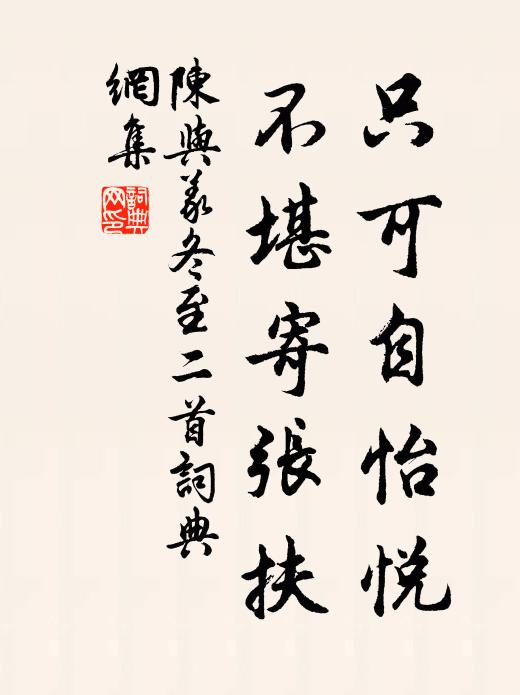 只可自怡悅
不堪寄張扶
陳與義冬至二首詞典
網集
詞典網印